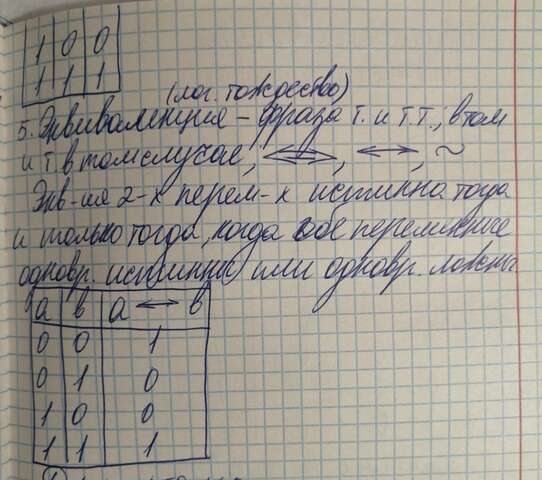 1 0 0
1 1 1
(лог. тождество)
5. Эквиваленция – фраза т. и т.т.; в том
и т. в том случае, ⟺, ↔, ~
Экв-ия 2-х перем-х истинна тогда
и только тогда, когда обе переменные
одновр. истинны или одновр. ложны
a b a ↔ b
0 0 1
0 1 0
1 0 0
1 1 1